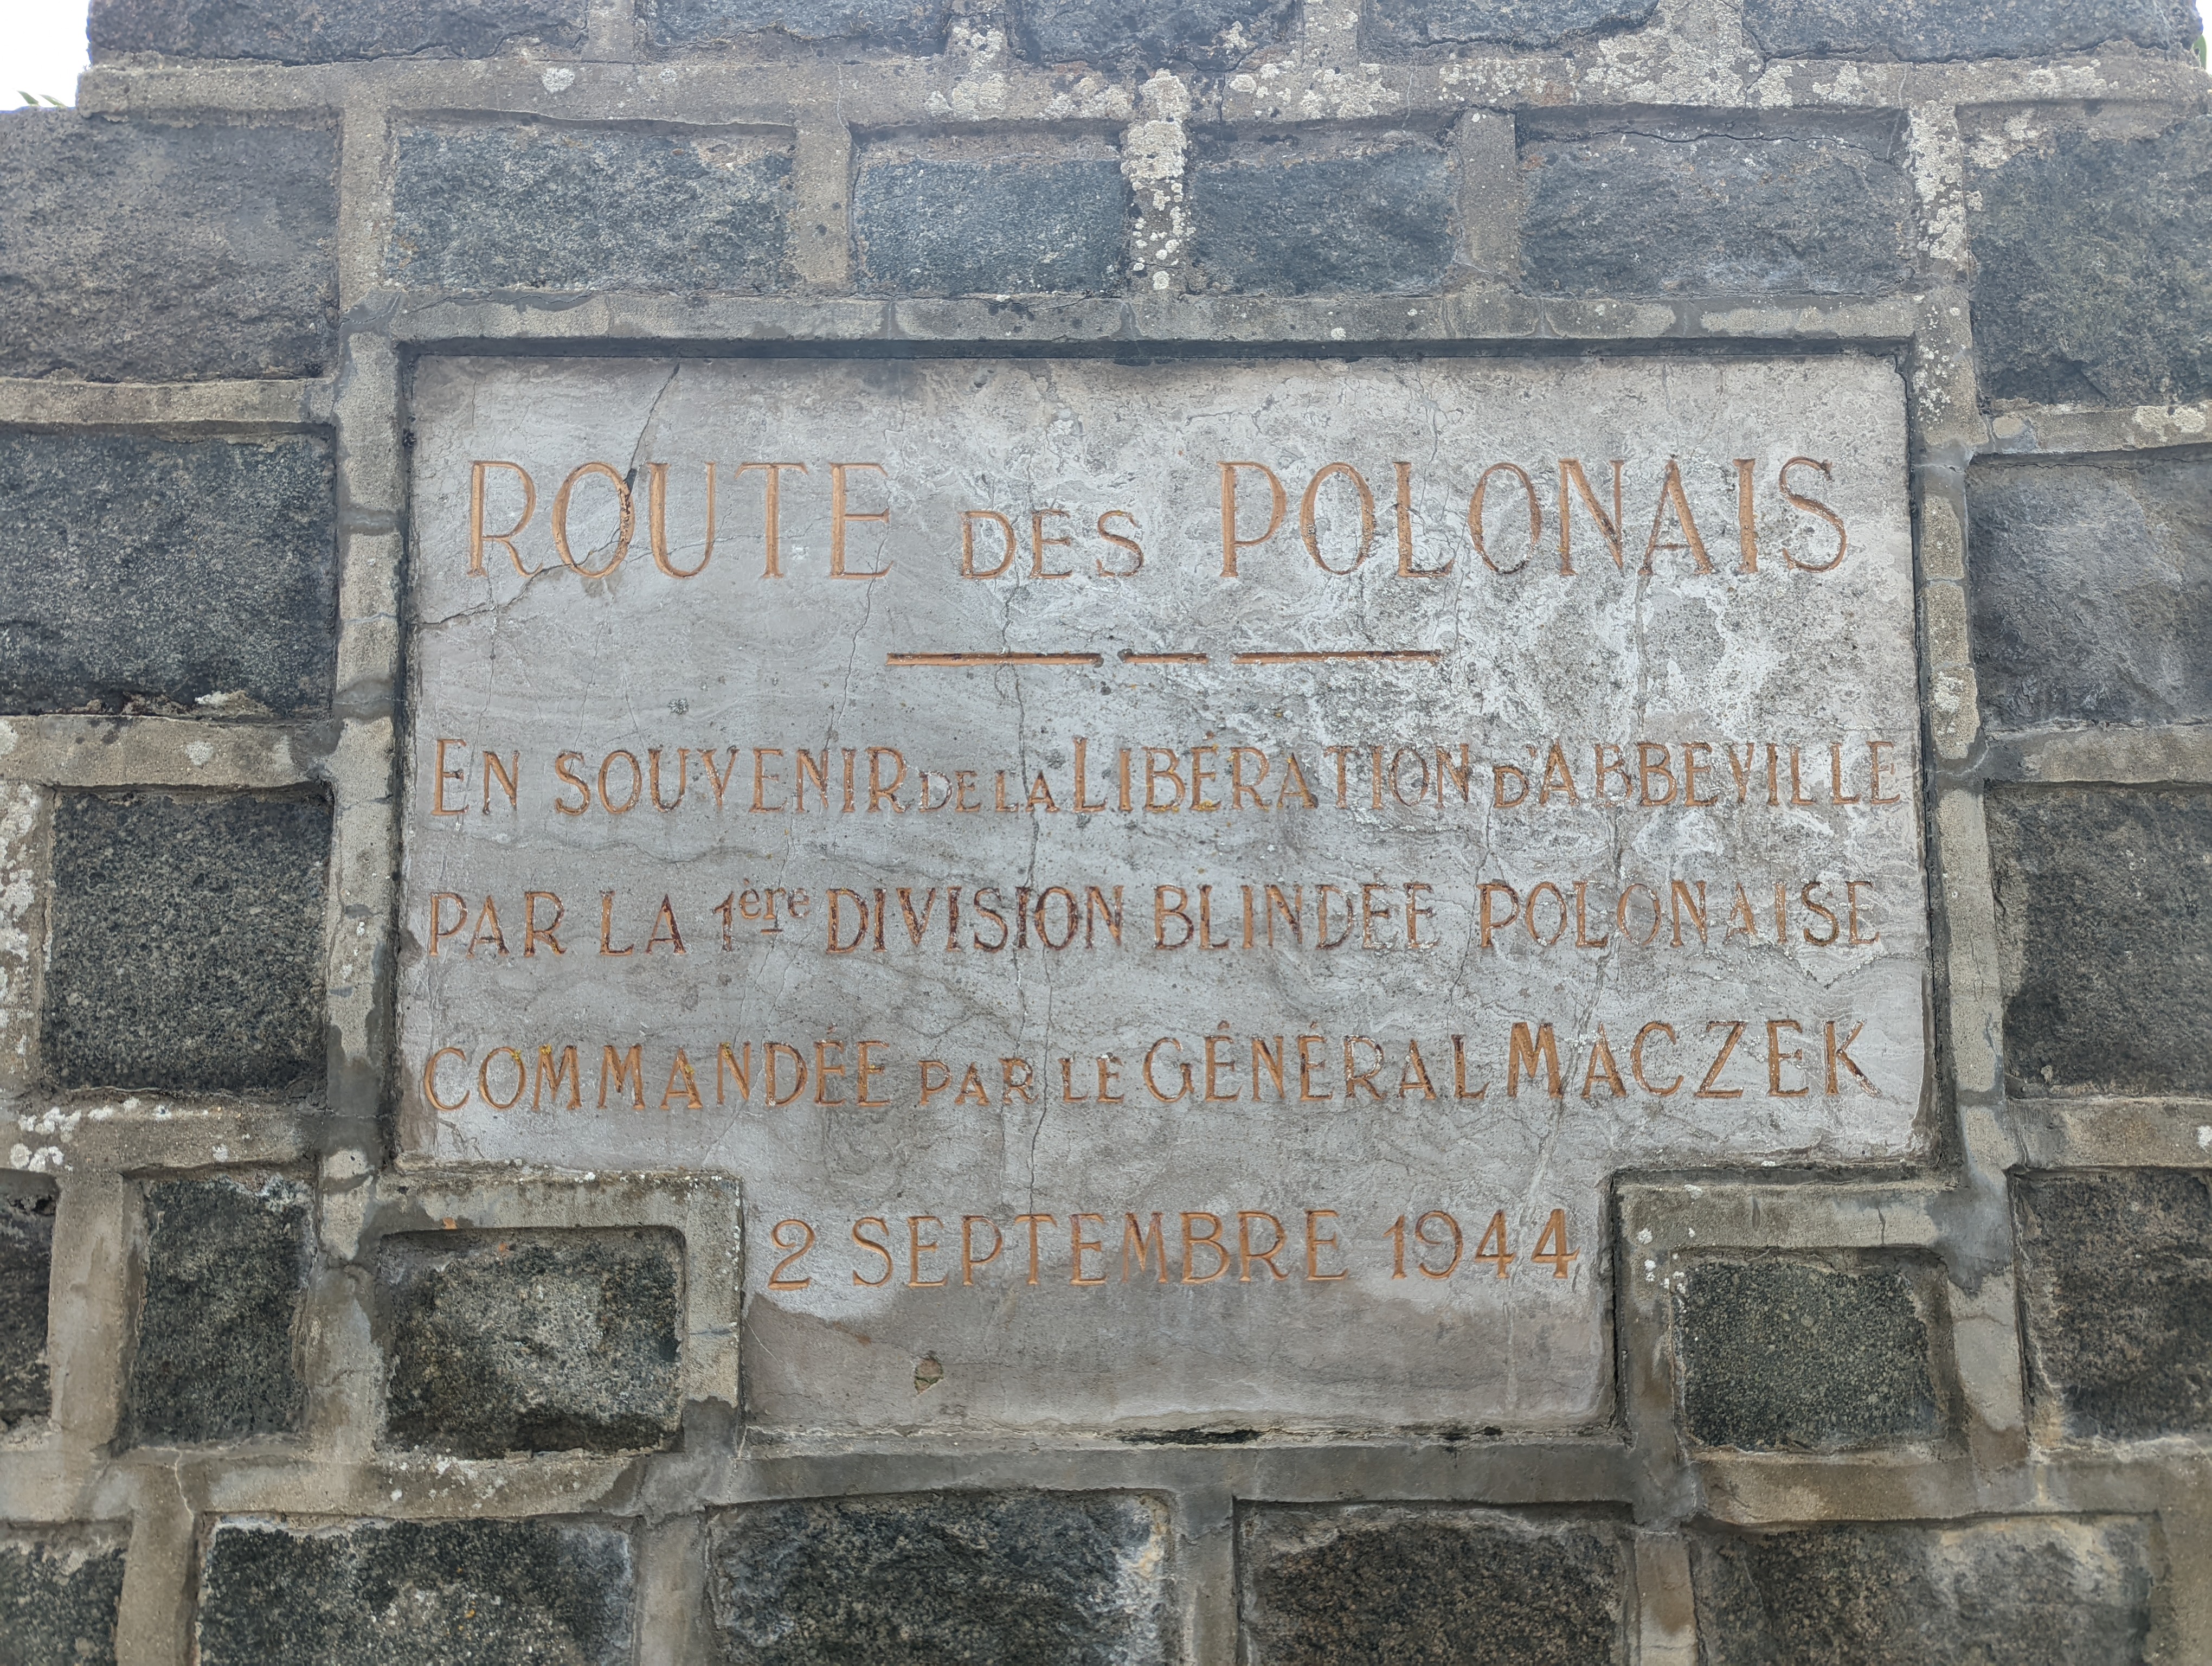 ROUTE DES POLONAIS
EN SOUVENIR DE LA LIBÉRATION D'ABBEVILLE
PAR LA 1ère DIVISION BLINDÉE POLONAISE
COMMANDÉE PAR LE GÉNÉRAL MACZEK
2 SEPTEMBRE 1944